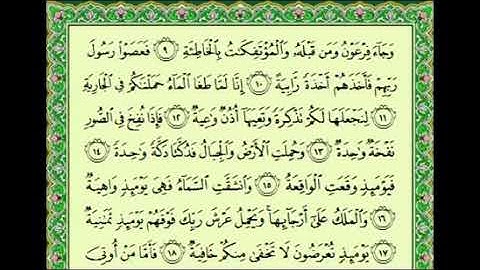 وَجَآءَ فِرْعَوْنُ وَمَن قَبْلَهُۥ وَٱلْمُؤْتَفِكَٰتُ بِٱلْخَاطِئَةِ ۝٩ فَعَصَوْا۟ رَسُولَ
رَبِّهِمْ فَأَخَذَهُمْ أَخْذَةً رَّابِيَةً ۝١٠ إِنَّا لَمَّا طَغَا ٱلْمَآءُ حَمَلْنَٰكُمْ فِى ٱلْجَارِيَةِ
۝١١ لِنَجْعَلَهَا لَكُمْ تَذْكِرَةً وَتَعِيَهَآ أُذُنٌ وَٰعِيَةٌ ۝١٢ فَإِذَا نُفِخَ فِى ٱلصُّورِ
نَفْخَةٌ وَٰحِدَةٌ ۝١٣ وَحُمِلَتِ ٱلْأَرْضُ وَٱلْجِبَالُ فَدُكَّتَا دَكَّةً وَٰحِدَةً ۝١٤
فَيَوْمَئِذٍ وَقَعَتِ ٱلْوَاقِعَةُ ۝١٥ وَٱنشَقَّتِ ٱلسَّمَآءُ فَهِىَ يَوْمَئِذٍ وَاهِيَةٌ
۝١٦ وَٱلْمَلَكُ عَلَىٰٓ أَرْجَآئِهَا ۚ وَيَحْمِلُ عَرْشَ رَبِّكَ فَوْقَهُمْ يَوْمَئِذٍ ثَمَٰنِيَةٌ
۝١٧ يَوْمَئِذٍ تُعْرَضُونَ لَا تَخْفَىٰ مِنكُمْ خَافِيَةٌ ۝١٨ فَأَمَّا مَنْ أُوتِىَ